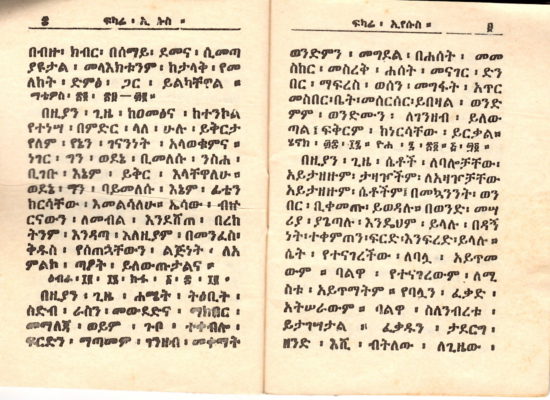 ፰ ፍካሬ ፡ ኢ ሱስ ።
በብዙ፡ ክብር፡ በሰማይ፡ ደመና ፡ ሲመጣ
ያዩታል ፡ መላእክቱንም ፡ ከታላቅ ፡ የመ
ለከት ፡ ድምፅ ፡ ጋር ፡ ይልካቸኛል ።
በዚያን ፡ ጊዜ ፡ ከዐመፅና ፡ ከተንኮል
የተነሣ ፡ በምድር ፡ ላለ ፡ ሁሉ ፡ ይቅርታ
የለም ፡ የኔን ፡ ገናንነት ፡ አላወቁምና ፡
ነገር ፡ ግን ፡ ወደኔ ፡ ቢመለሱ ፡ ንስሐ ፡
ቢገቡ ፡ እኔም ፡ ይቅር ፡ እላቸዋለሁ ።
ወደኔ ፡ ግን ፡ ባይመለሱ ፡ እኔም ፡ ፊቴን
ከርሳቸው ፡ እመልሳለሁ ። ኤሳው ፡ ብዙ
ርናውን ፡ ለመብል ፡ እንደሸጠ ፡ በረከ
ትንም ፡ እንዳጣ ፡ እለዚያም ፡ በመንፈስ፡
ቅዱስ ፡ የሰጠኋቸውን ፡ ልጅነት ፡ ለአ
ምልኮ ፡ ጣዖት ፡ ይለውጡታልና ።
በዚያን ፡ ጊዜ ፡ ሐሜት ፡ ትዕቢት ፡
ስድብ ፡ ራስን ፡ መውደድና ፡ ማክበር ፡
መማለጃ ፡ ወይም ፡ ጉቦ ፡ ተቀብሎ ፡
ፍርድን ፡ ማጣመም ፡ ገንዘብ ፡ መቀማት
ፍካሬ ፡ ኢየሱስ ። ፱
ወንድምን ፡ መግደል ፡ በሐሰት ፡ መመ
ስከር ፡ መስረቅ ፡ ሐሰት ፡ መናገር ፡ ድን
በር ፡ ማፍረስ ፡ ወሰን ፡ መግፋት ፡ አጥር
መስበር፡ቤት፡መሰርሰር፡ይበዛል ፡ ወንድ
ምም ፡ ወንድሙን ፡ ለገንዘብ ፡ ይለው
ጣል፤ፍቅርም ፡ ከነርሳቸው ፡ ይርቃል።
በዚያን ፡ ጊዜ ፡ ሴቶች ፡ ለባሎቻቸው፡
አይታዘዙም፡ ታዛዦችም፡ ለአዛዦቻቸው
አይታዘዙም፡ ሴቶችም፤ በመኳንንት፡ ወን
በር ፡ ቢቀመጡ፡ ይወዳሉ። በወንድ፡ መሣ
ሪያ ፡ ያጌጣሉ ፡ እንዲህም ፡ ይላሉ ፡ በዳኝ
ነት፡ተቀምጠን፡ፍርድ፡እንፍረድ፡ይላሉ ።
ሴት ፡ የተናገረችው ፡ ለባሏ ፡ አይጥመ
ውም ። ባልዋ ፡ የተናገረውም ፡ ለሚ
ስቱ ፡ አይጥማትም ። የባሏን ፡ ፈቃድ ፡
አትሠራውም ። ባልዋ ፡ ስለንብረቱ ፡
ይታገሣታል ። ፈቃዱን ፡ ታደርግ ፡
ዘንድ ፡ እሺ ፡ ብትለው ፡ ለጊዜው ፡